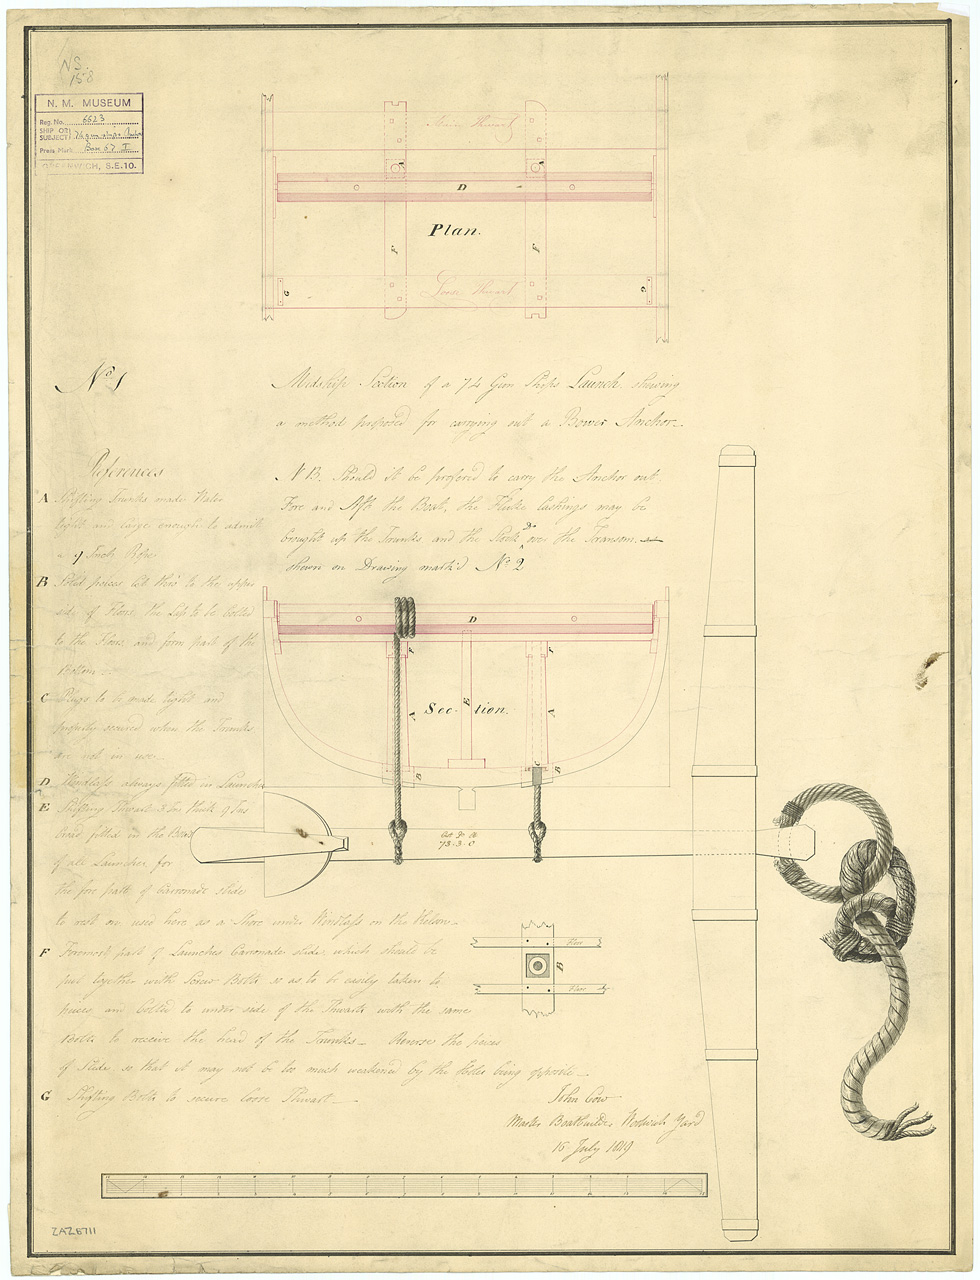 NS.
158
N. M. MUSEUM
Reg. No. 6623
SHIP OR SUBJECT} 74 gun ships
Press Mark Box 67
GREENWICH, S.E.10.
Thwart
A
A
D
Plan.
F
F
Loose Thwart
G
G
No. 1
Midship Section of a 74 Gun Ships Launch, shewing
a method proposed for carrying out a Bower Anchor.
References
NB. Should it be prefered to carry the Anchor out
Fore and Aft the Boat, the Fluke lashings may be
brought up the Trunks and the Stock Do over the Transom.
shewn on Drawing mark'd No. 2
A Shifting Trunks made Water
tight and large enough to admit
a 9 Inch Rope
B Solid pieces let thro to the upper
side of Floors, the Lips to be bolted
to the Floors and form part of the
Bottom
C Plugs to be made tight and
properly secured when the Trunks
are not in use.
D Windlass always fitted in Launches
E Shifting Thwart
fitted in the Boats
of all Launches, for
the fore part of Carronade slide
to rest on used here as a Shore under Windlass on the Kelson
F Foremost part of Launches Carronade slide, which should be
put together with Screw Bolts so as to be easily taken to
pieces, and bolted to under side of the Thwarts with the same
Bolts to receive the head of the Trunks. Reverse the pieces
of Slide, so that it may not be too much weakened by the Holes being opposite
G Shifting Bolts to secure loose Thwart
D
F
F
E
Section.
A
A
B
C
B
73.3.0
Floor
B
Floor
John Cow
Master Boatbuilder Woolwich Yard
15 July 1819
ZAZ6711